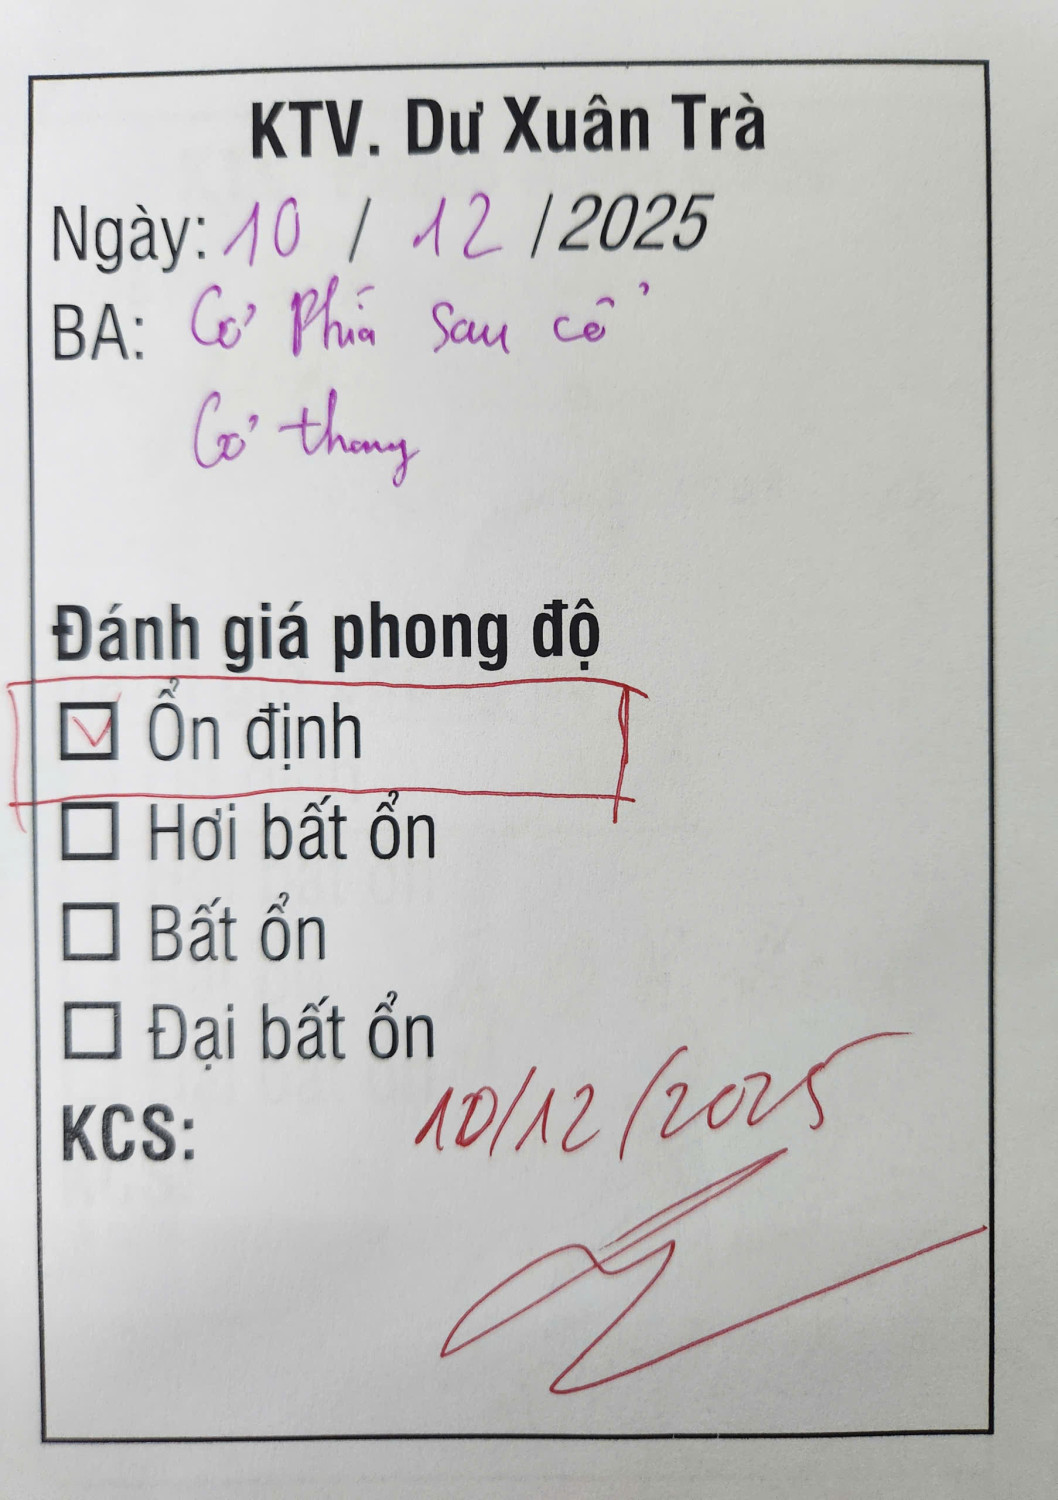 KTV. Dư Xuân Trà
Ngày: 10 / 12 /2025
BA: Cơ phía sau cổ
Cơ thang
Đánh giá phong độ
Ổn định
Hơi bất ổn
Bất ổn
Đại bất ổn
KCS: 10/12/2025